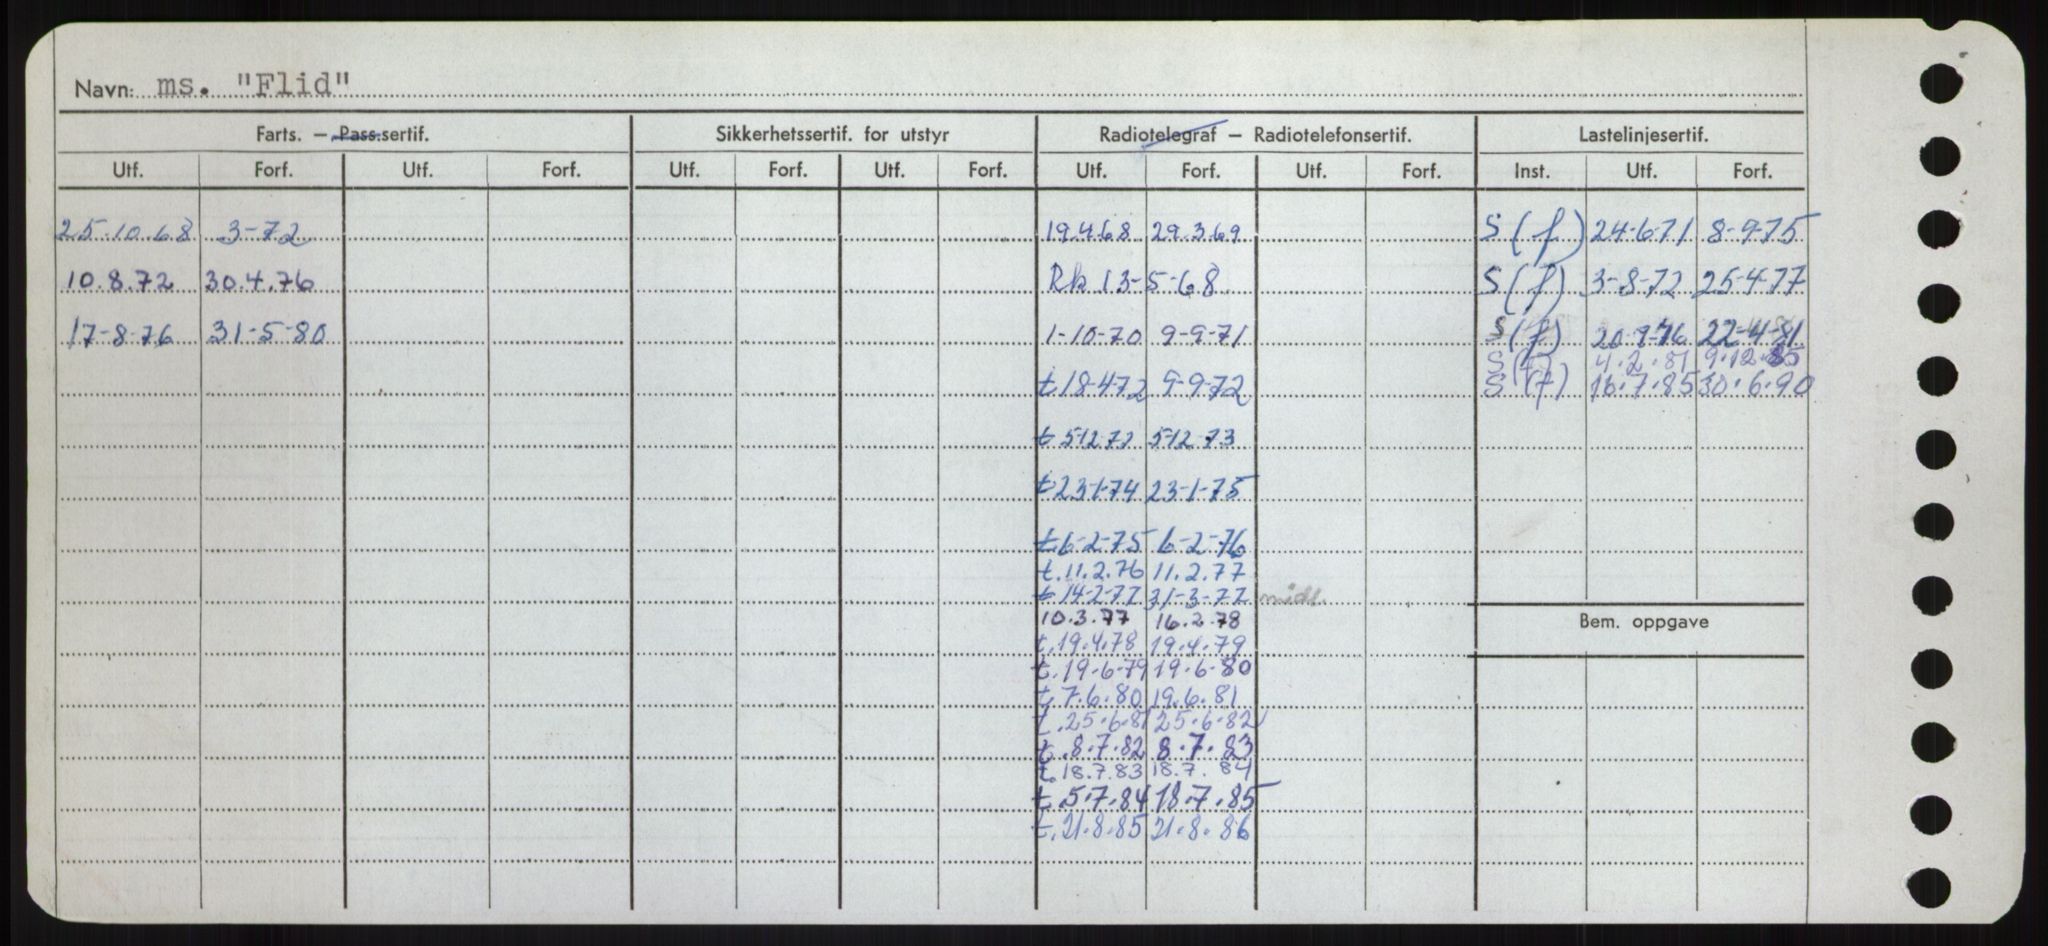 Navn: ms. "Flid"
Farts. — Pass.sertif. Sikkerhetssertif. for utstyr Radiotelegraf — Radiotelefonsertif. Lastelinjesertif.
Utf. Forf. Utf. Forf. Utf. Forf. Utf. Forf. Utf. Forf. Utf. Forf. Inst. Utf. Forf.
25.10.68 3-72 19.4.68 29.3.69 S (f) 24-6-71 8-9-75
10.8.72 30.4.76 Rk 13-5-68 S (f) 3-8-72 25-4-77
17-8-76 31-5-80 1-10-70 9-9-71 S (f) 20.9.76 22-4-81
S (f) 4.2.81 9.12.85
t 18-4-72 9-9-72 S (f) 16.7.85 30.6.90
t 5-12-72 5-12-73
t 23-1-74 23-1-75
t 6-2-75 6-2-76
t. 11.2.76 11.2.77
t 14-2-77 31-3-77 midt.
10.3.77 16.2.78
Bem. oppgave
t. 19.4.78 19.4.79
t. 19.6.79 19.6.80
t. 7.6.80 19.6.81
t. 25.6.81 25.6.82
t. 8.7.82 8.7.83
t. 18.7.83 18.7.84
t. 5.7.84 18.7.85
t. 21.8.85 21.8.86